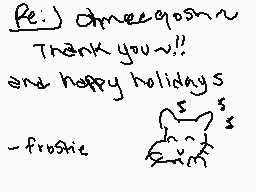 Re:) ohmeegosh~
Thank you~!!
and happy holidays
-frostie